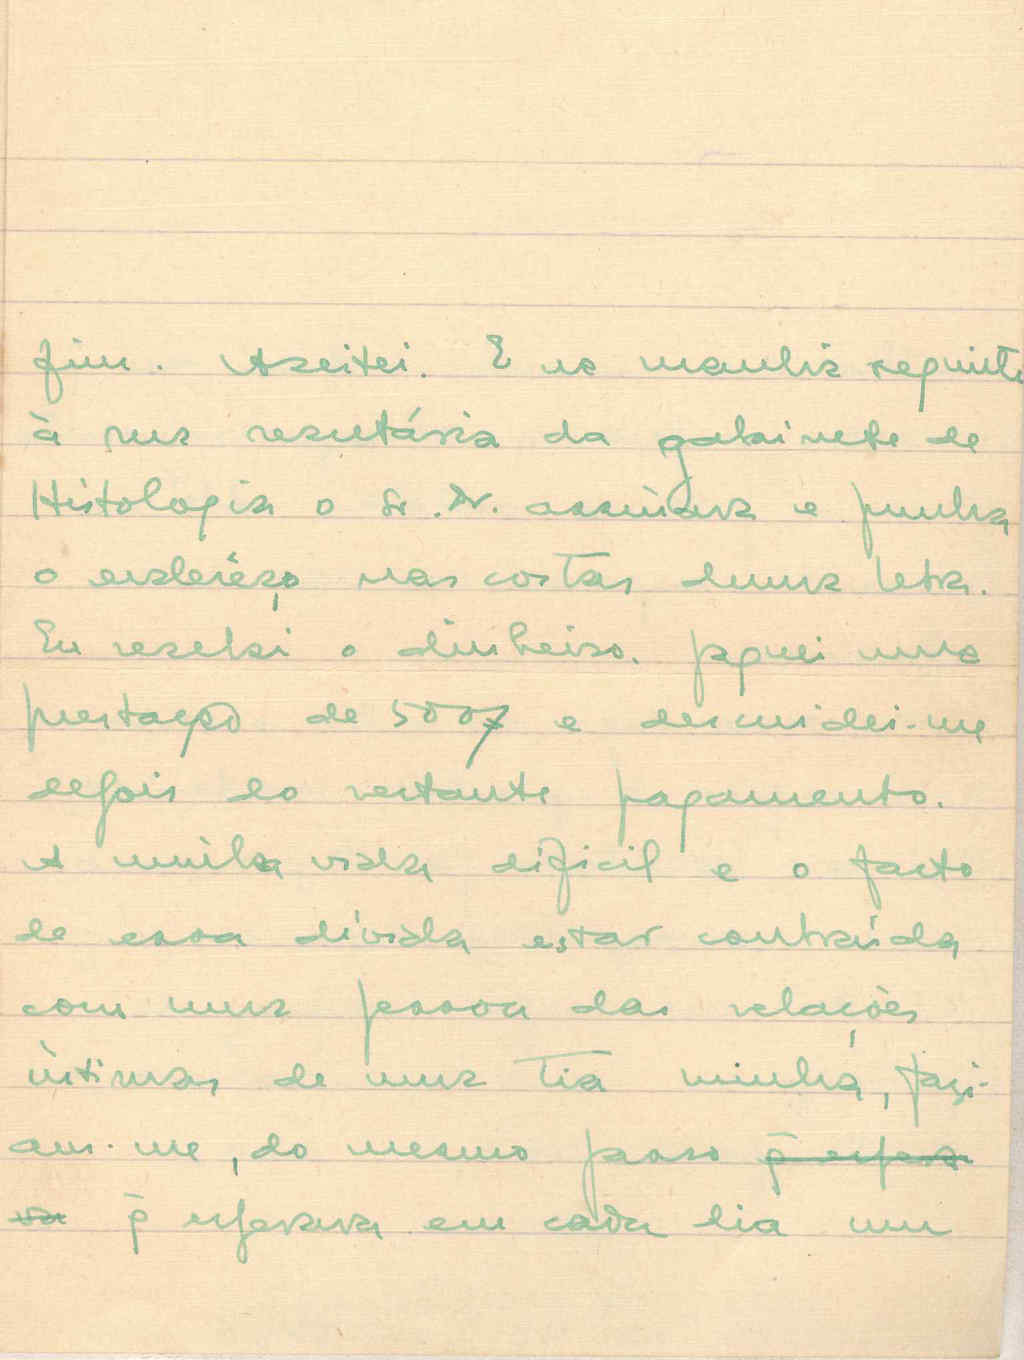 fim. Aceitei. E na manhã seguinte
à sua secretária da gabinete de
Histologia o Sr. Dr. assinava e punha
o enderêço nas costas duma letra.
Eu recebi o dinheiro. Paguei uma
prestação de 500$ e descuidei-me
depois do restante pagamento.
A minha vida dificil e o facto
de essa divida estar contraída
com uma pessoa das relações
íntimas de uma tia minha, fazi-
am-me, do mesmo passo q̄ espera
va q̄ esperava em cada dia um